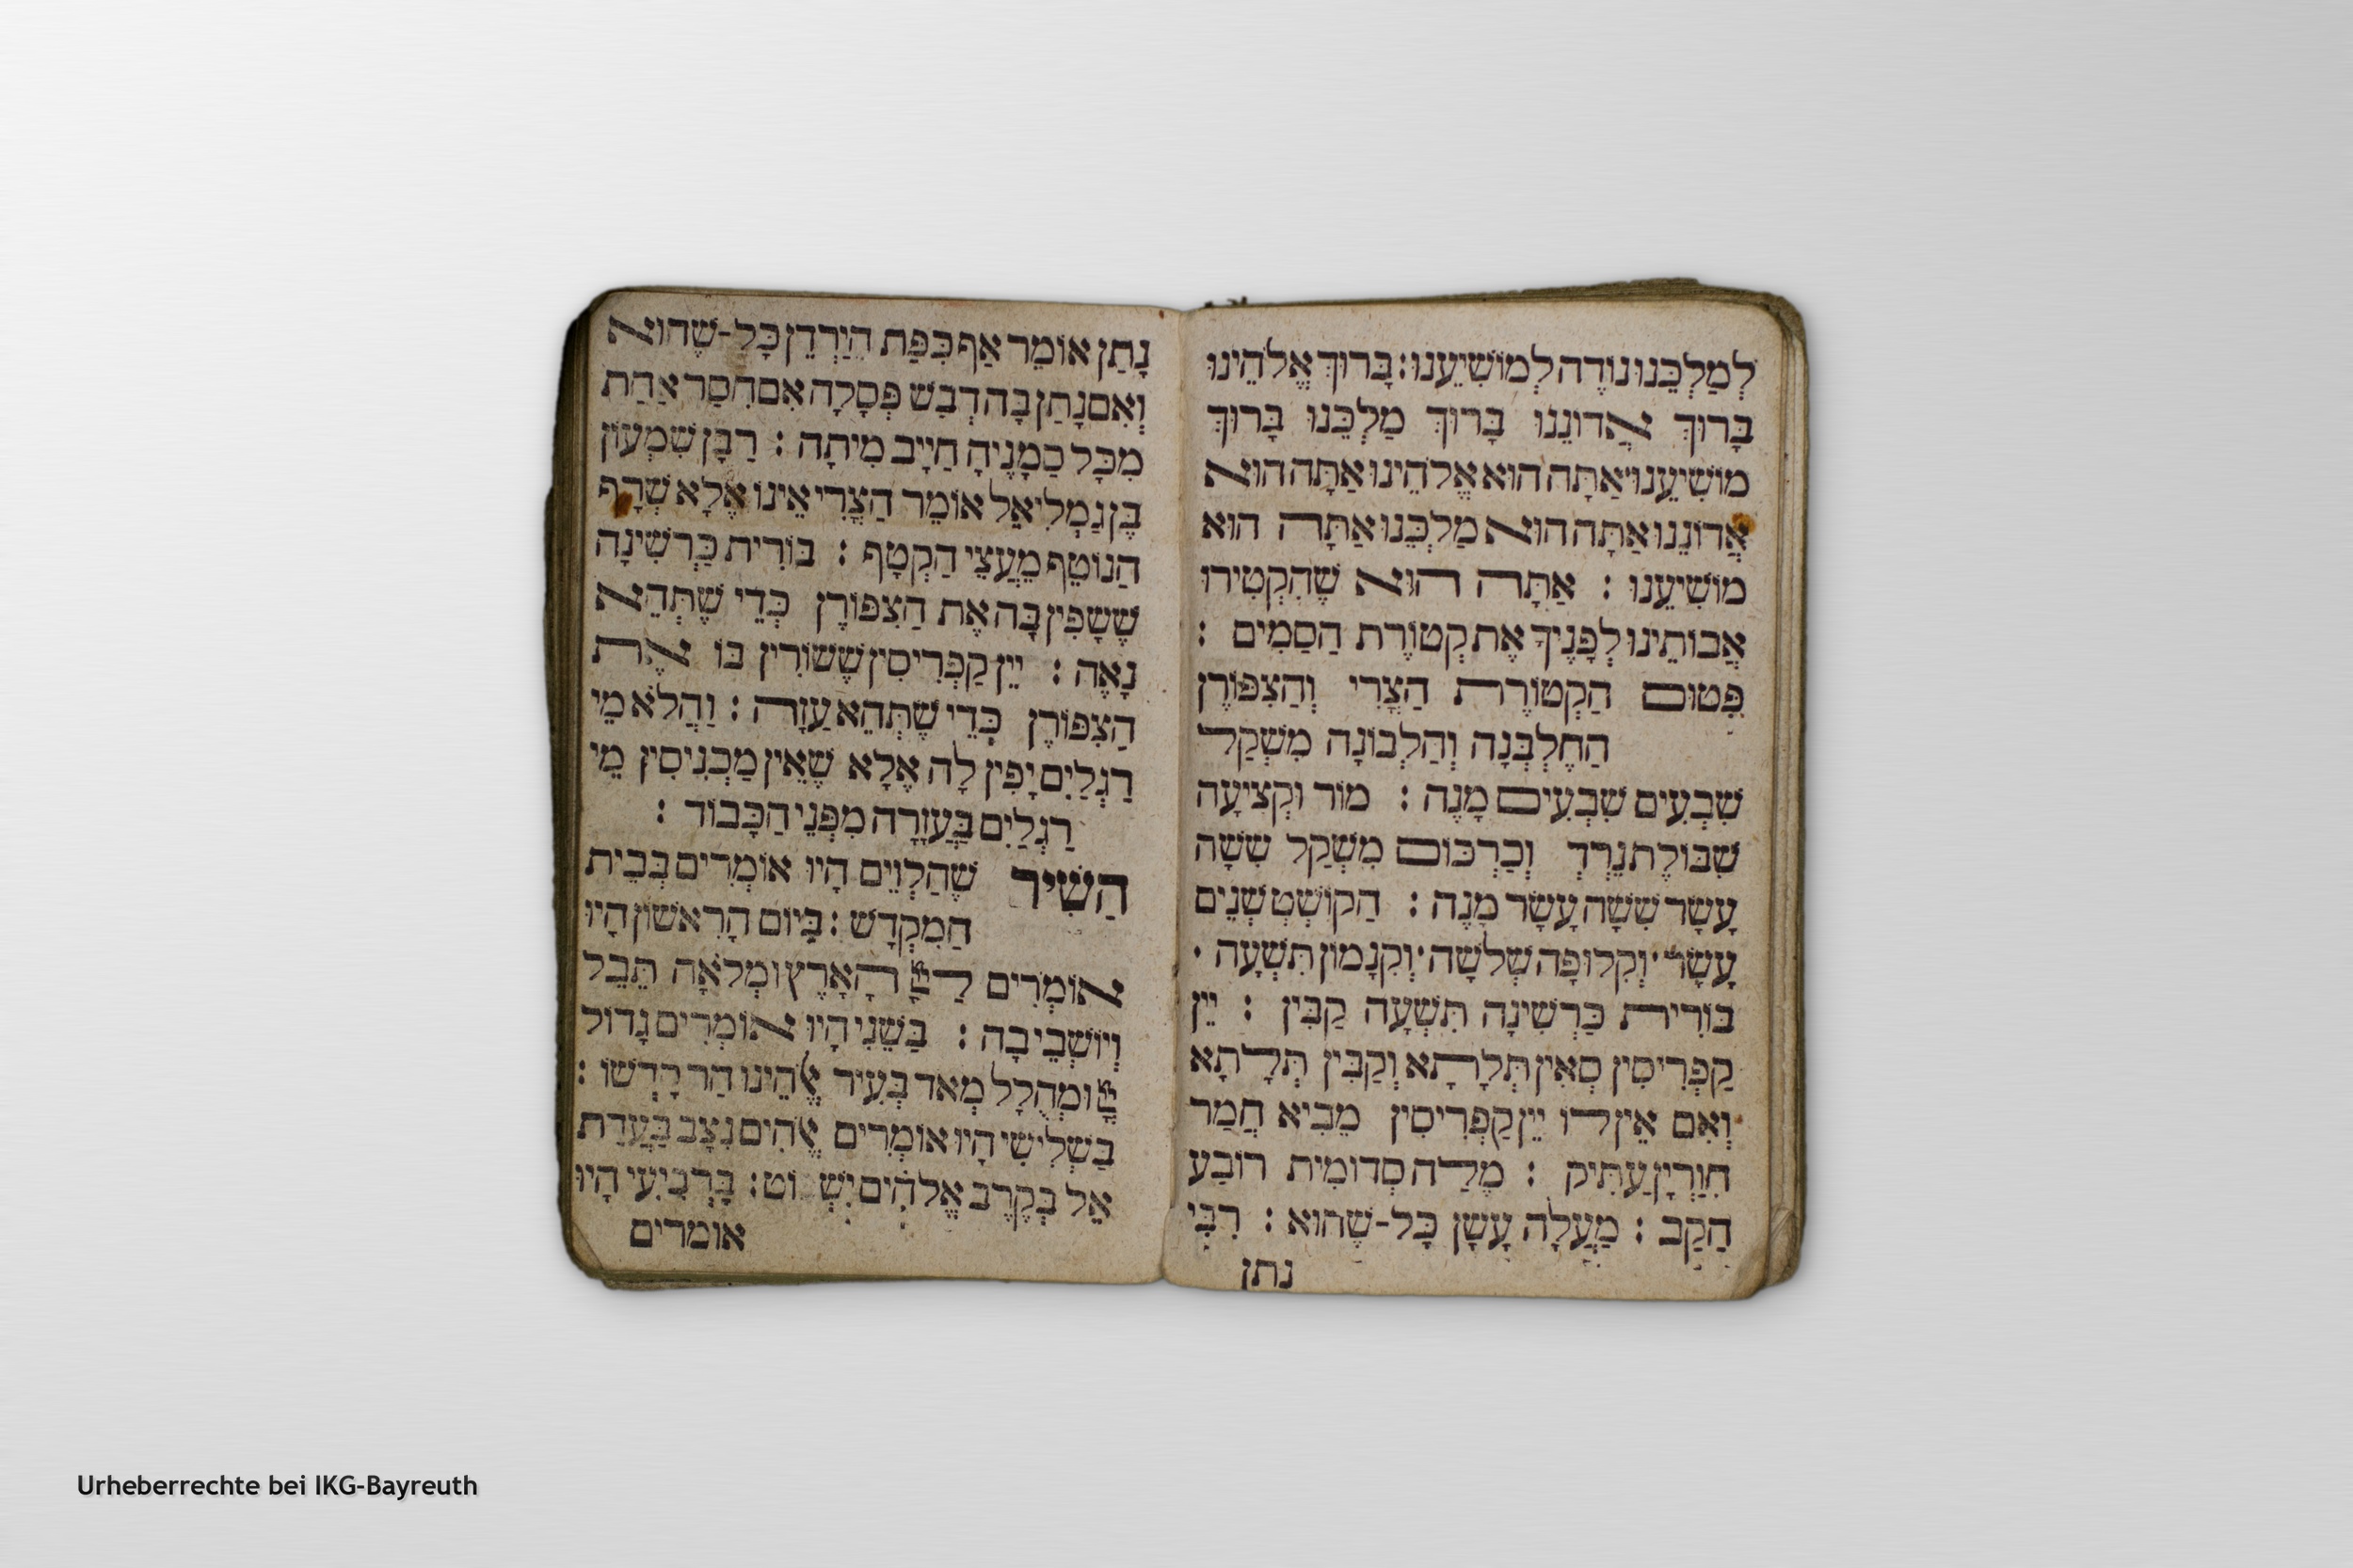 לְמַלְכֵּנוּ נוֹדֶה לְמוֹשִׁיעֵנוּ: בָּרוּךְ אֱלֹהֵינוּ
בָּרוּךְ אֲדוֹנֵנוּ בָּרוּךְ מַלְכֵּנוּ בָּרוּךְ
מוֹשִׁיעֵנוּ אַתָּה הוּא אֱלֹהֵינוּ אַתָּה הוּא
אֲדוֹנֵנוּ אַתָּה הוּא מַלְכֵּנוּ אַתָּה הוּא
מוֹשִׁיעֵנוּ : אַתָּה הוּא שֶׁהִקְטִירוּ
אֲבוֹתֵינוּ לְפָנֶיךָ אֶת קְטוֹרֶת הַסַמִים :
פִּטוּם הַקְטוֹרֶת הַצֳרִי וְהַצִפּוֹרֶן
הַחֶלְבְּנָה וְהַלְבוֹנָה מִשְׁקַל
שִׁבְעִים שִׁבְעִים מָנֶה : מוֹר וּקְצִיעָה
שִׁבּוֹלֶת נֵרְדְּ וְכַרְכּוֹם מִשְׁקַל שִׁשָׁה
עָשָׂר שִׁשָׁה עָשָׂר מָנֶה : הַקוֹשְׁטְ שְׁנֵים
עָשָׂר · וְקִלוּפָה שְׁלֹשָׁה · וְקִנָמוֹן תִּשְׁעָה ·
בּוֹרִית כַּרְשִׁינָה תִּשְׁעָה קַבִּין : יֵין
קַפְּרִיסִין סְאִין תְּלָתָא וְקַבִּין תְּלָתָא
וְאִם אֵין לוֹ יֵין קַפְּרִיסִין מֵבִיא חֲמַר
חִוַרְיָן עַתִּיק : מֶלַח סְדוֹמִית רוֹבַע
הַקַב : מַעֲלֶה עָשָׁן כָּל-שֶׁהוּא : רַבִּי
נתן
נָתָן אוֹמֵר אַף כִּפַּת הַיַרְדֵן כָּל-שֶׁהוּא
וְאִם נָתַן בָּה דְבַשׁ פְּסָלָה אִם חִסַר אַחַת
מִכָּל סַמָנֶיהָ חַיָיב מִיתָה : רַבָּן שִׁמְעוֹן
בֶּן גַמְלִיאֵל אוֹמֵר הַצֳרִי אֵינוֹ אֶלָא שְׂרָף
הַנוֹטֵף מֵעֲצֵי הַקְטָף : בּוֹרִית כַּרְשִׁינָה
שֶׁשָׁפִין בָּה אֶת הַצִפּוֹרֶן כְּדֵי שֶׁתְּהֵא
נָאֶה : יֵין קַפְּרִיסִין שֶׁשׁוֹרִין בּוֹ אֶת
הַצִפּוֹרֶן כְּדֵי שֶׁתְּהֵא עַזָה : וַהֲלֹא מֵי
רַגְלַיִם יָפִין לָה אֶלָא שֶׁאֵין מַכְנִיסִין מֵי
רַגְלַיִם בַּעֲזָרָה מִפְּנֵי הַכָּבוֹד :
הַשִׁיר שֶׁהַלְוִיִם הָיוּ אוֹמְרִים בְּבֵית
הַמִקְדָשׁ : בַּיוֹם הָרִאשׁוֹן הָיוּ
אוֹמְרִים לַיְיָ הָאָרֶץ וּמְלֹאָהּ תֵּבֵל
וְיוֹשְׁבֵי בָהּ : בַּשֵׁנִי הָיוּ אוֹמְרִים גָדוֹל
יְיָ וּמְהֻלָל מְאֹד בְּעִיר אֱלֹהֵינוּ הַר קָדְשׁוֹ :
בַּשְׁלִישִׁי הָיוּ אוֹמְרִים אֱלֹהִים נִצָב בַּעֲדַת
אֵל בְּקֶרֶב אֱלֹהִים : בָּרְבִיעִי הָיוּ
אומרים
Urheberrechte bei IKG-Bayreuth